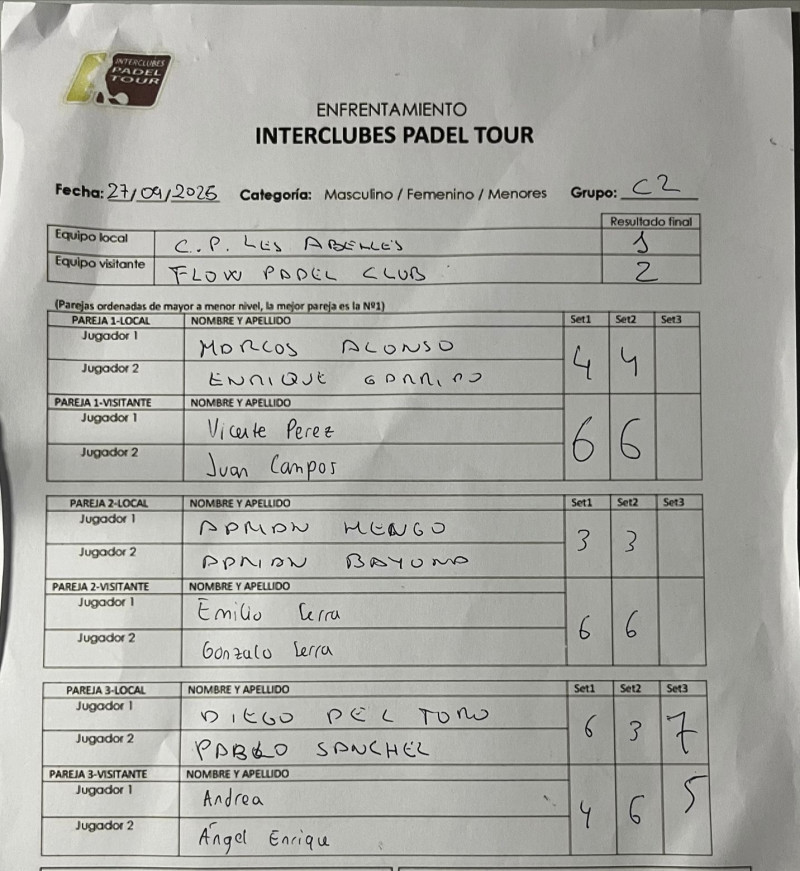 INTERCLUBES
PADEL
TOUR
ENFRENTAMIENTO
INTERCLUBES PADEL TOUR
Fecha: 27/09/2025 Categoría: Masculino / Femenino / Menores Grupo: C2
Resultado final
Equipo local C.P. LES ABELLES 1
Equipo visitante FLOW PADEL CLUB 2
(Parejas ordenadas de mayor a menor nivel, la mejor pareja es la Nº1)
PAREJA 1-LOCAL NOMBRE Y APELLIDO Set1 Set2 Set3
Jugador 1 MARCOS ALONSO
4 4
Jugador 2 ENRIQUE GARRIDO
PAREJA 1-VISITANTE NOMBRE Y APELLIDO
Jugador 1 Vicente Perez
6 6
Jugador 2 Juan Campos
PAREJA 2-LOCAL NOMBRE Y APELLIDO Set1 Set2 Set3
Jugador 1 ADRIAN MENGO
3 3
Jugador 2 ADRIAN BAYONA
PAREJA 2-VISITANTE NOMBRE Y APELLIDO
Jugador 1 Emilio Serra
6 6
Jugador 2 Gonzalo Serra
PAREJA 3-LOCAL NOMBRE Y APELLIDO Set1 Set2 Set3
Jugador 1 DIEGO DEL TORO
6 3 7
Jugador 2 PABLO SANCHEZ
PAREJA 3-VISITANTE NOMBRE Y APELLIDO
Jugador 1 Andrea
4 6 5
Jugador 2 Ángel Enrique